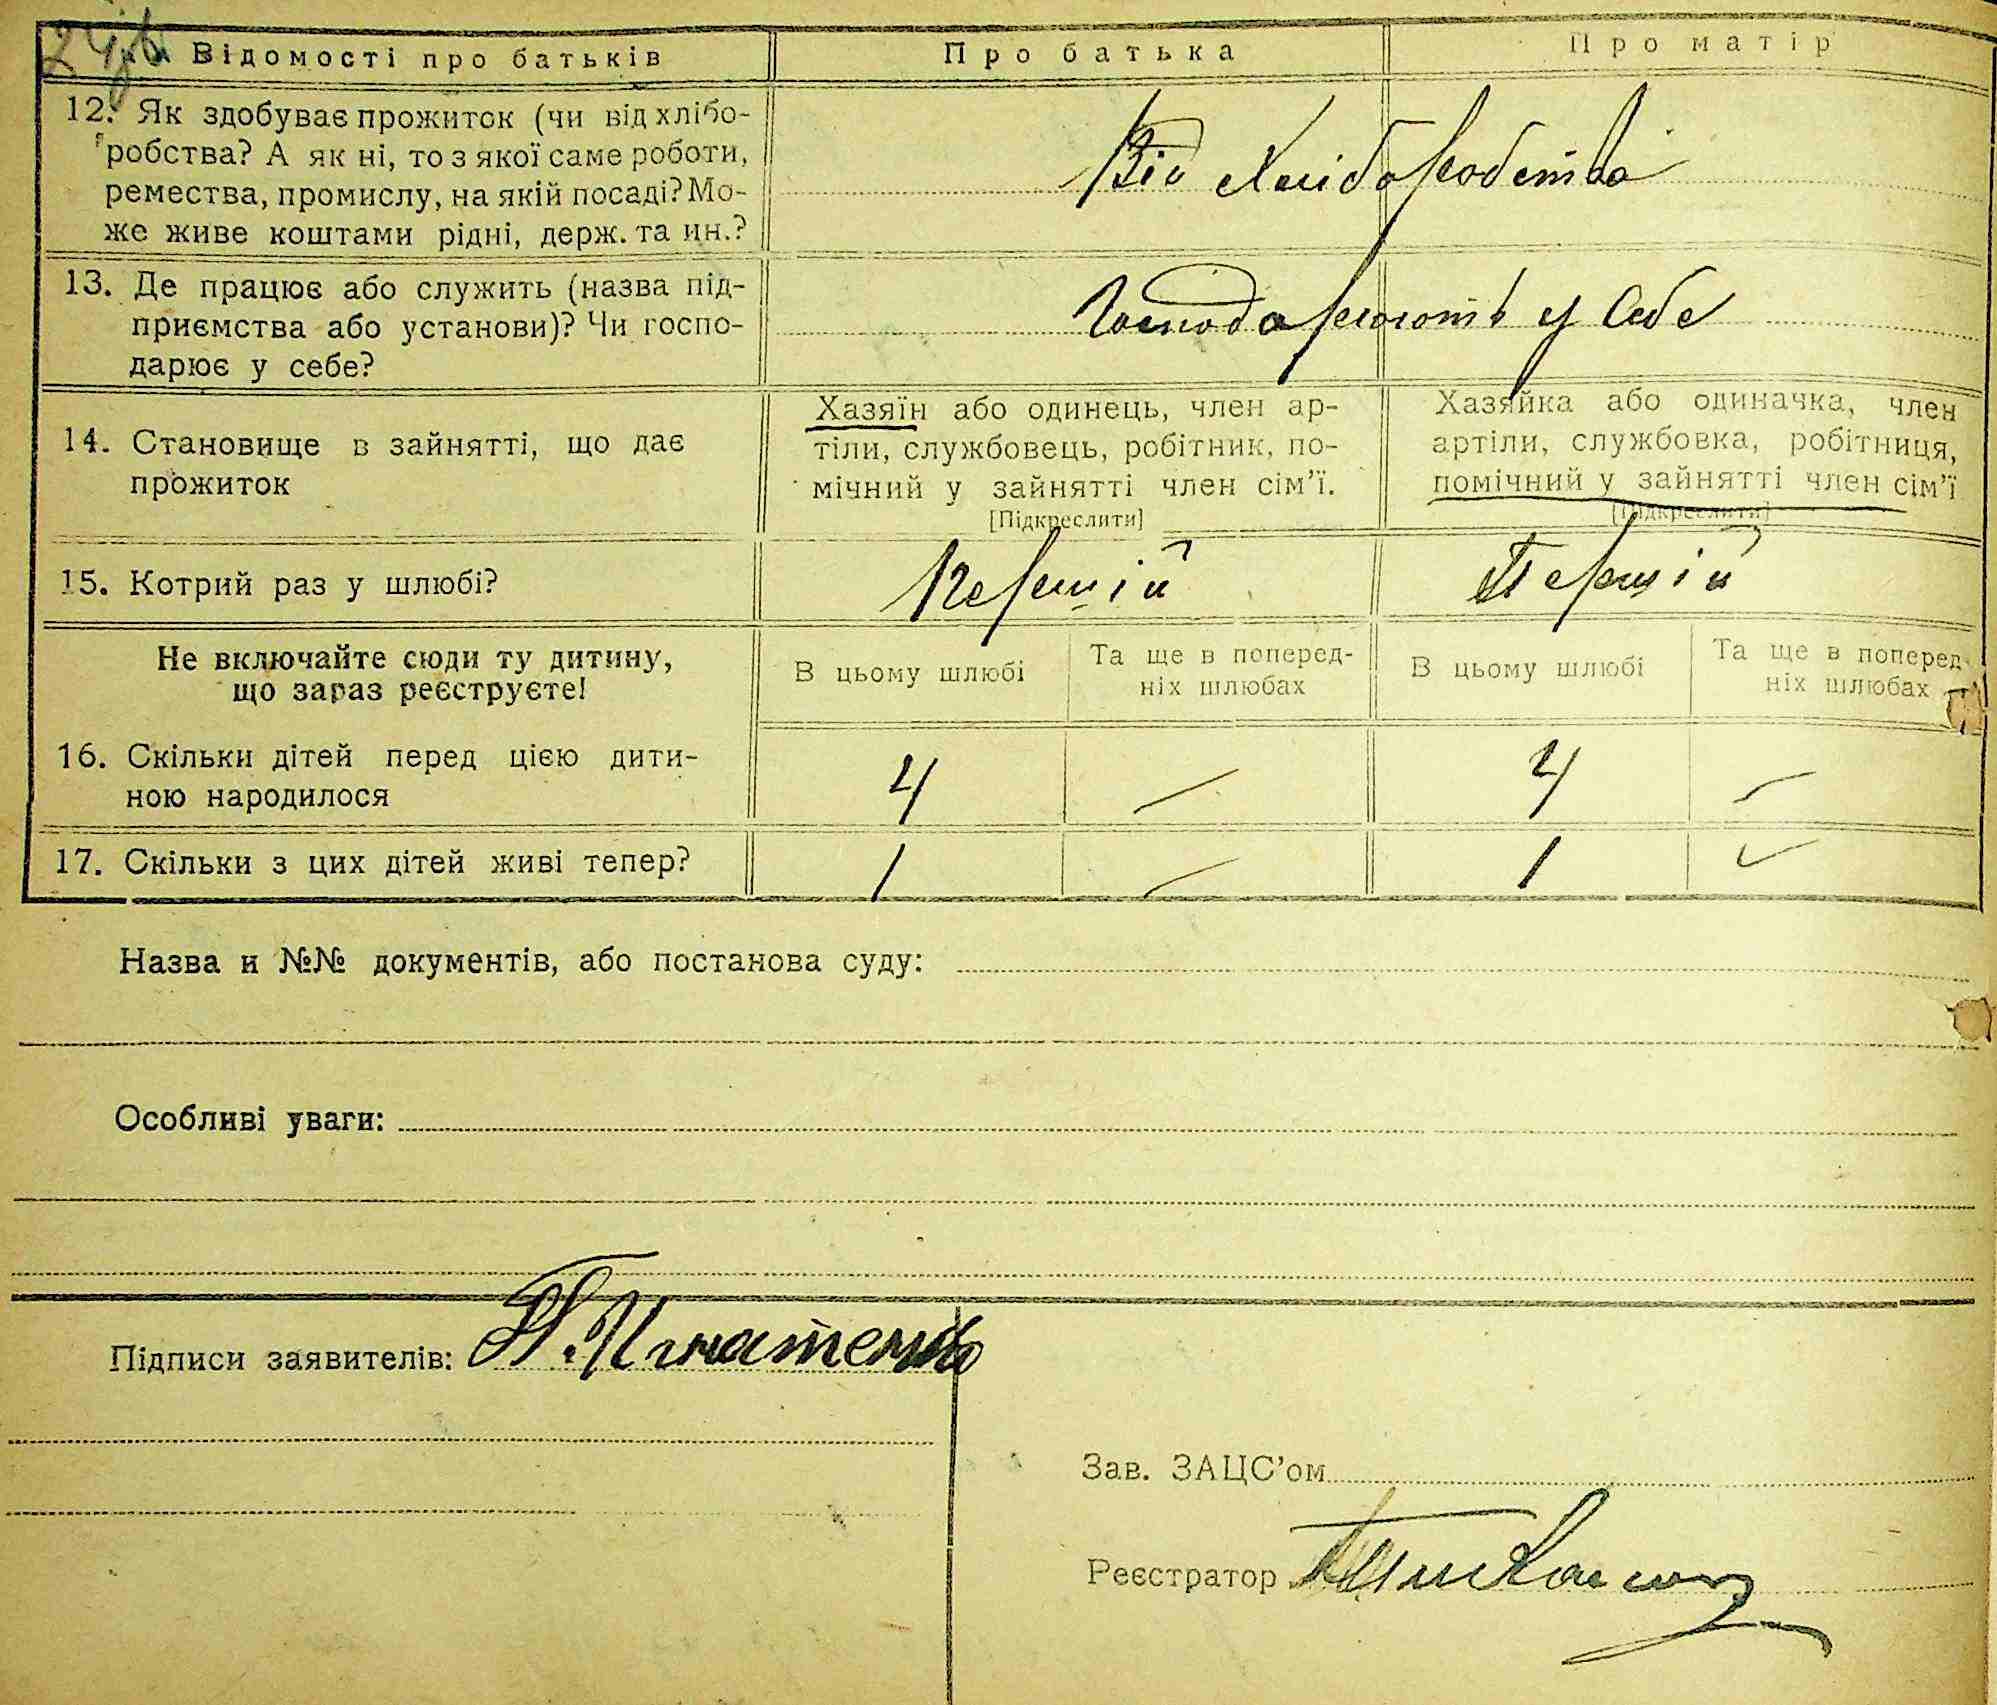 Відомості про батьків
Про батька
Про матір
12. Як здобуває прожиток (чи від хлібо-
робства? А як ні, то з якої саме роботи,
ремества, промислу, на якій посаді? Мо-
же живе коштами рідні, держ. та ин.?
Від хліборобства
13. Де працює або служить (назва під-
приємства або установи)? Чи госпо-
дарює у себе?
Господарюють у себе
14. Становище в зайнятті, що дає
прожиток
Хазяїн або одинець, член ар-
тіли, службовець, робітник, по-
мічний у зайнятті член сім’ї.
[Підкреслити]
Хазяйка або одиначка, член
артіли, службовка, робітниця,
помічний у зайнятті член сім’ї
[Підкреслити]
15. Котрий раз у шлюбі?
Перший
Перший
Не включайте сюди ту дитину,
що зараз реєструєте!
В цьому шлюбі
Та ще в поперед-
ніх шлюбах
В цьому шлюбі
Та ще в поперед-
ніх шлюбах
16. Скільки дітей перед цією дити-
ною народилося
4
—
4
—
17. Скільки з цих дітей живі тепер?
1
—
1
—
Назва и №№ документів, або постанова суду:
Особливі уваги:
Підписи заявителів:
Игнатенко
Зав. ЗАЦС’ом
Реєстратор